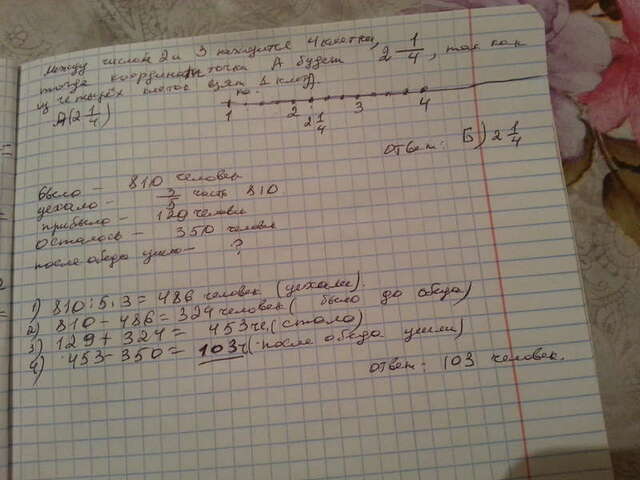 Между числом 2 и 3 находится 4 клетки,
тогда координат точки A будет 2 1/4, так как
из четырёх клеток взят 1 клет.
A(2 1/4)
A
1 2 2 1/4 3 4
ответ: Б) 2 1/4
было - 810 человек
уехало - 3/5 часть 810
прибыло - 129 человек
осталось - 350 человек
после обеда ушло - ?
1) 810:5·3=486 человек (уехали).
2) 810-486=324 человек (было до обеда)
3) 129+324=453 че(стало)
4) 453-350=103ч(после обеда ушли)
ответ: 103 человек.